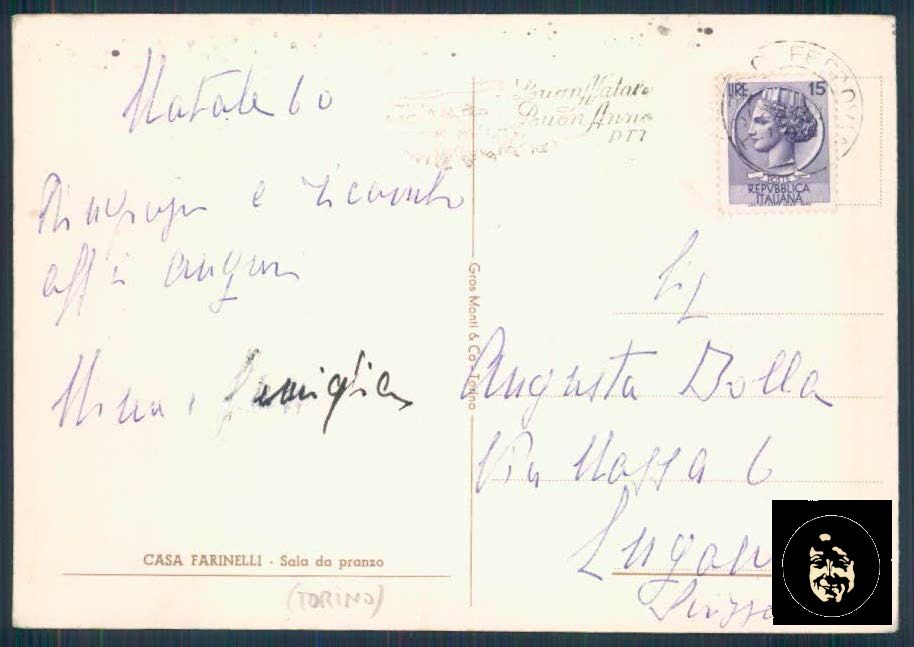 Natale 60
Ringrazio e ricambio
aff.i auguri
Mina e famiglia
CASA FARINELLI - Sala da pranzo
(TORINO)
Gros Monti & Co - Torino
Buon Natale
Buon Anno
PTT
LIRE 15
POSTE
REPVBBLICA
ITALIANA
Sig
Augusta Bolla
Via Massa 6
Lugano
Svizzera